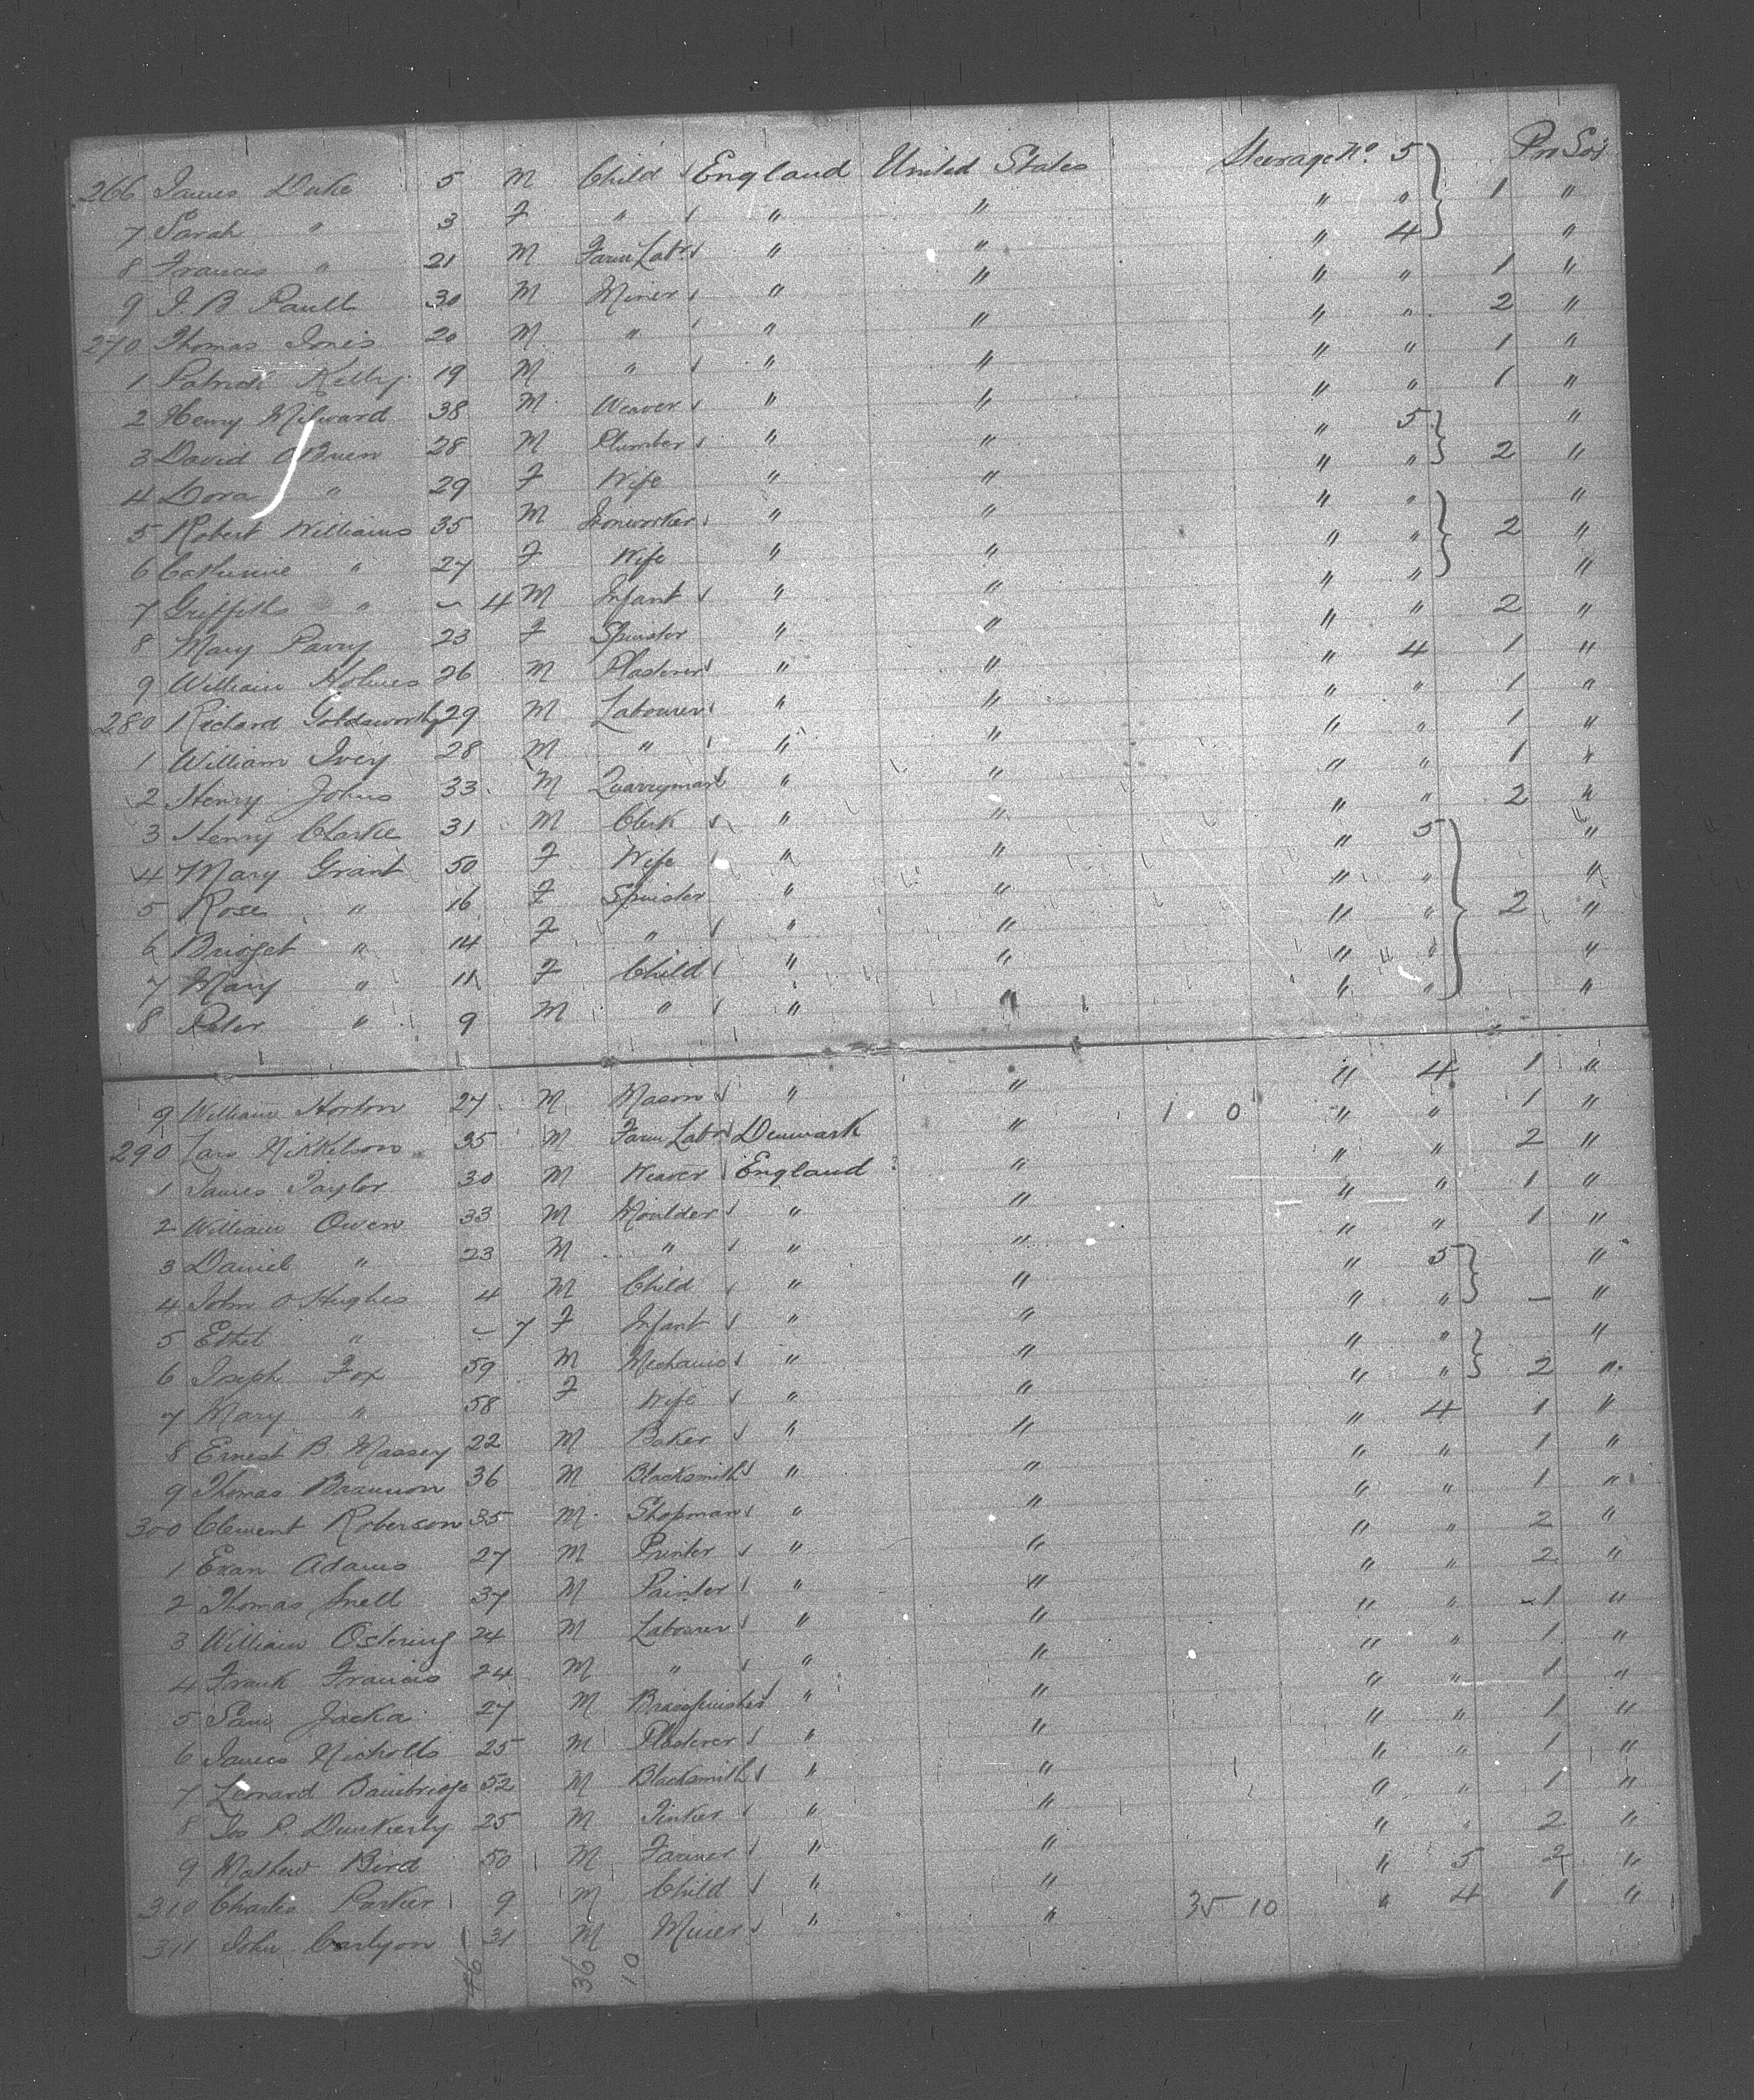 266 James Duke 5 M Child England United States Steerage No. 5 Pro Soj
7 Sarah " 3 F " " " " " 1 "
8 Francis " 21 M Farm Labr " " " 4 "
9 J. B Paull 30 M Miner " " " " 1 "
270 Thomas Jones 20 M " " " " " 2 "
1 Patrick Kelly 19 M " " " " " 1 "
2 Henry Milward 38 M Weaver " " " " 1 "
3 David O'Brien 28 M Plumber " " " 5 "
4 Dora " 29 F Wife " " " " 2 "
5 Robert Williams 35 M Ironworker " " " " "
6 Catherine " 27 F Wife " " " " 2 "
7 Griffith " - 4 M Infant " " " " "
8 Mary Parry 23 F Spinster " " " " 2 "
9 William Holmes 26 M Plasterer " " " 4 1 "
280 Richard Goldsworthy 29 M Labourer " " " " 1 "
1 William Ivey 28 M " " " " " 1 "
2 Henry Johns 33 M Quarryman " " " " 1 "
3 Henry Clarke 31 M Clerk " " " " 2 "
4 Mary Grant 50 F Wife " " " 5 "
5 Rose " 16 F Spinster " " " " "
6 Bridget " 14 F " " " " " 2 "
7 Mary " 11 F Child " " " " "
8 Peter " 9 M " " " " " "
9 William Horton 27 M Mason " " " 4 1 "
290 Lars Nikkelson 35 M Farm Labr Denmark " 1 . 0 " " 1 "
1 James Taylor 30 M Weaver England " " " 2 "
2 William Owen 33 M Moulder " " " " 1 "
3 Daniel " 23 M " " " " " 1 "
4 John O Hughes 4 M Child " " " 5 "
5 Ethel " - 7 F Infant " " " " - "
6 Joseph Fox 59 M Mechanic " " " " "
7 Mary " 58 F Wife " " " " 2 "
8 Ernest B. Massey 22 M Baker " " " 4 1 "
9 Thomas Brannon 36 M Blacksmith " " " " 1 "
300 Clement Roberson 35 M Shopman " " " " 1 "
1 Evan Adams 27 M Printer " " " " 2 "
2 Thomas Snell 37 M Painter " " " " 2 "
3 William Ostering 24 M Labourer " " " " 1 "
4 Frank Francis 24 M " " " " " 1 "
5 Sam Jacka 27 M Brassfinisher " " " " 1 "
6 James Nicholls 25 M Plasterer " " " " 1 "
7 Leonard Bainbridge 52 M Blacksmith " " " " 1 "
8 Jos P. Dunkerly 25 M Tinker " " " " 1 "
9 Mathew Bird 50 M Farmer " " " " 2 "
310 Charles Parker 9 M Child " " " 5 2 "
311 John Carlyon 31 M Miner " " 35 10 " 4 1 "
46 36 10